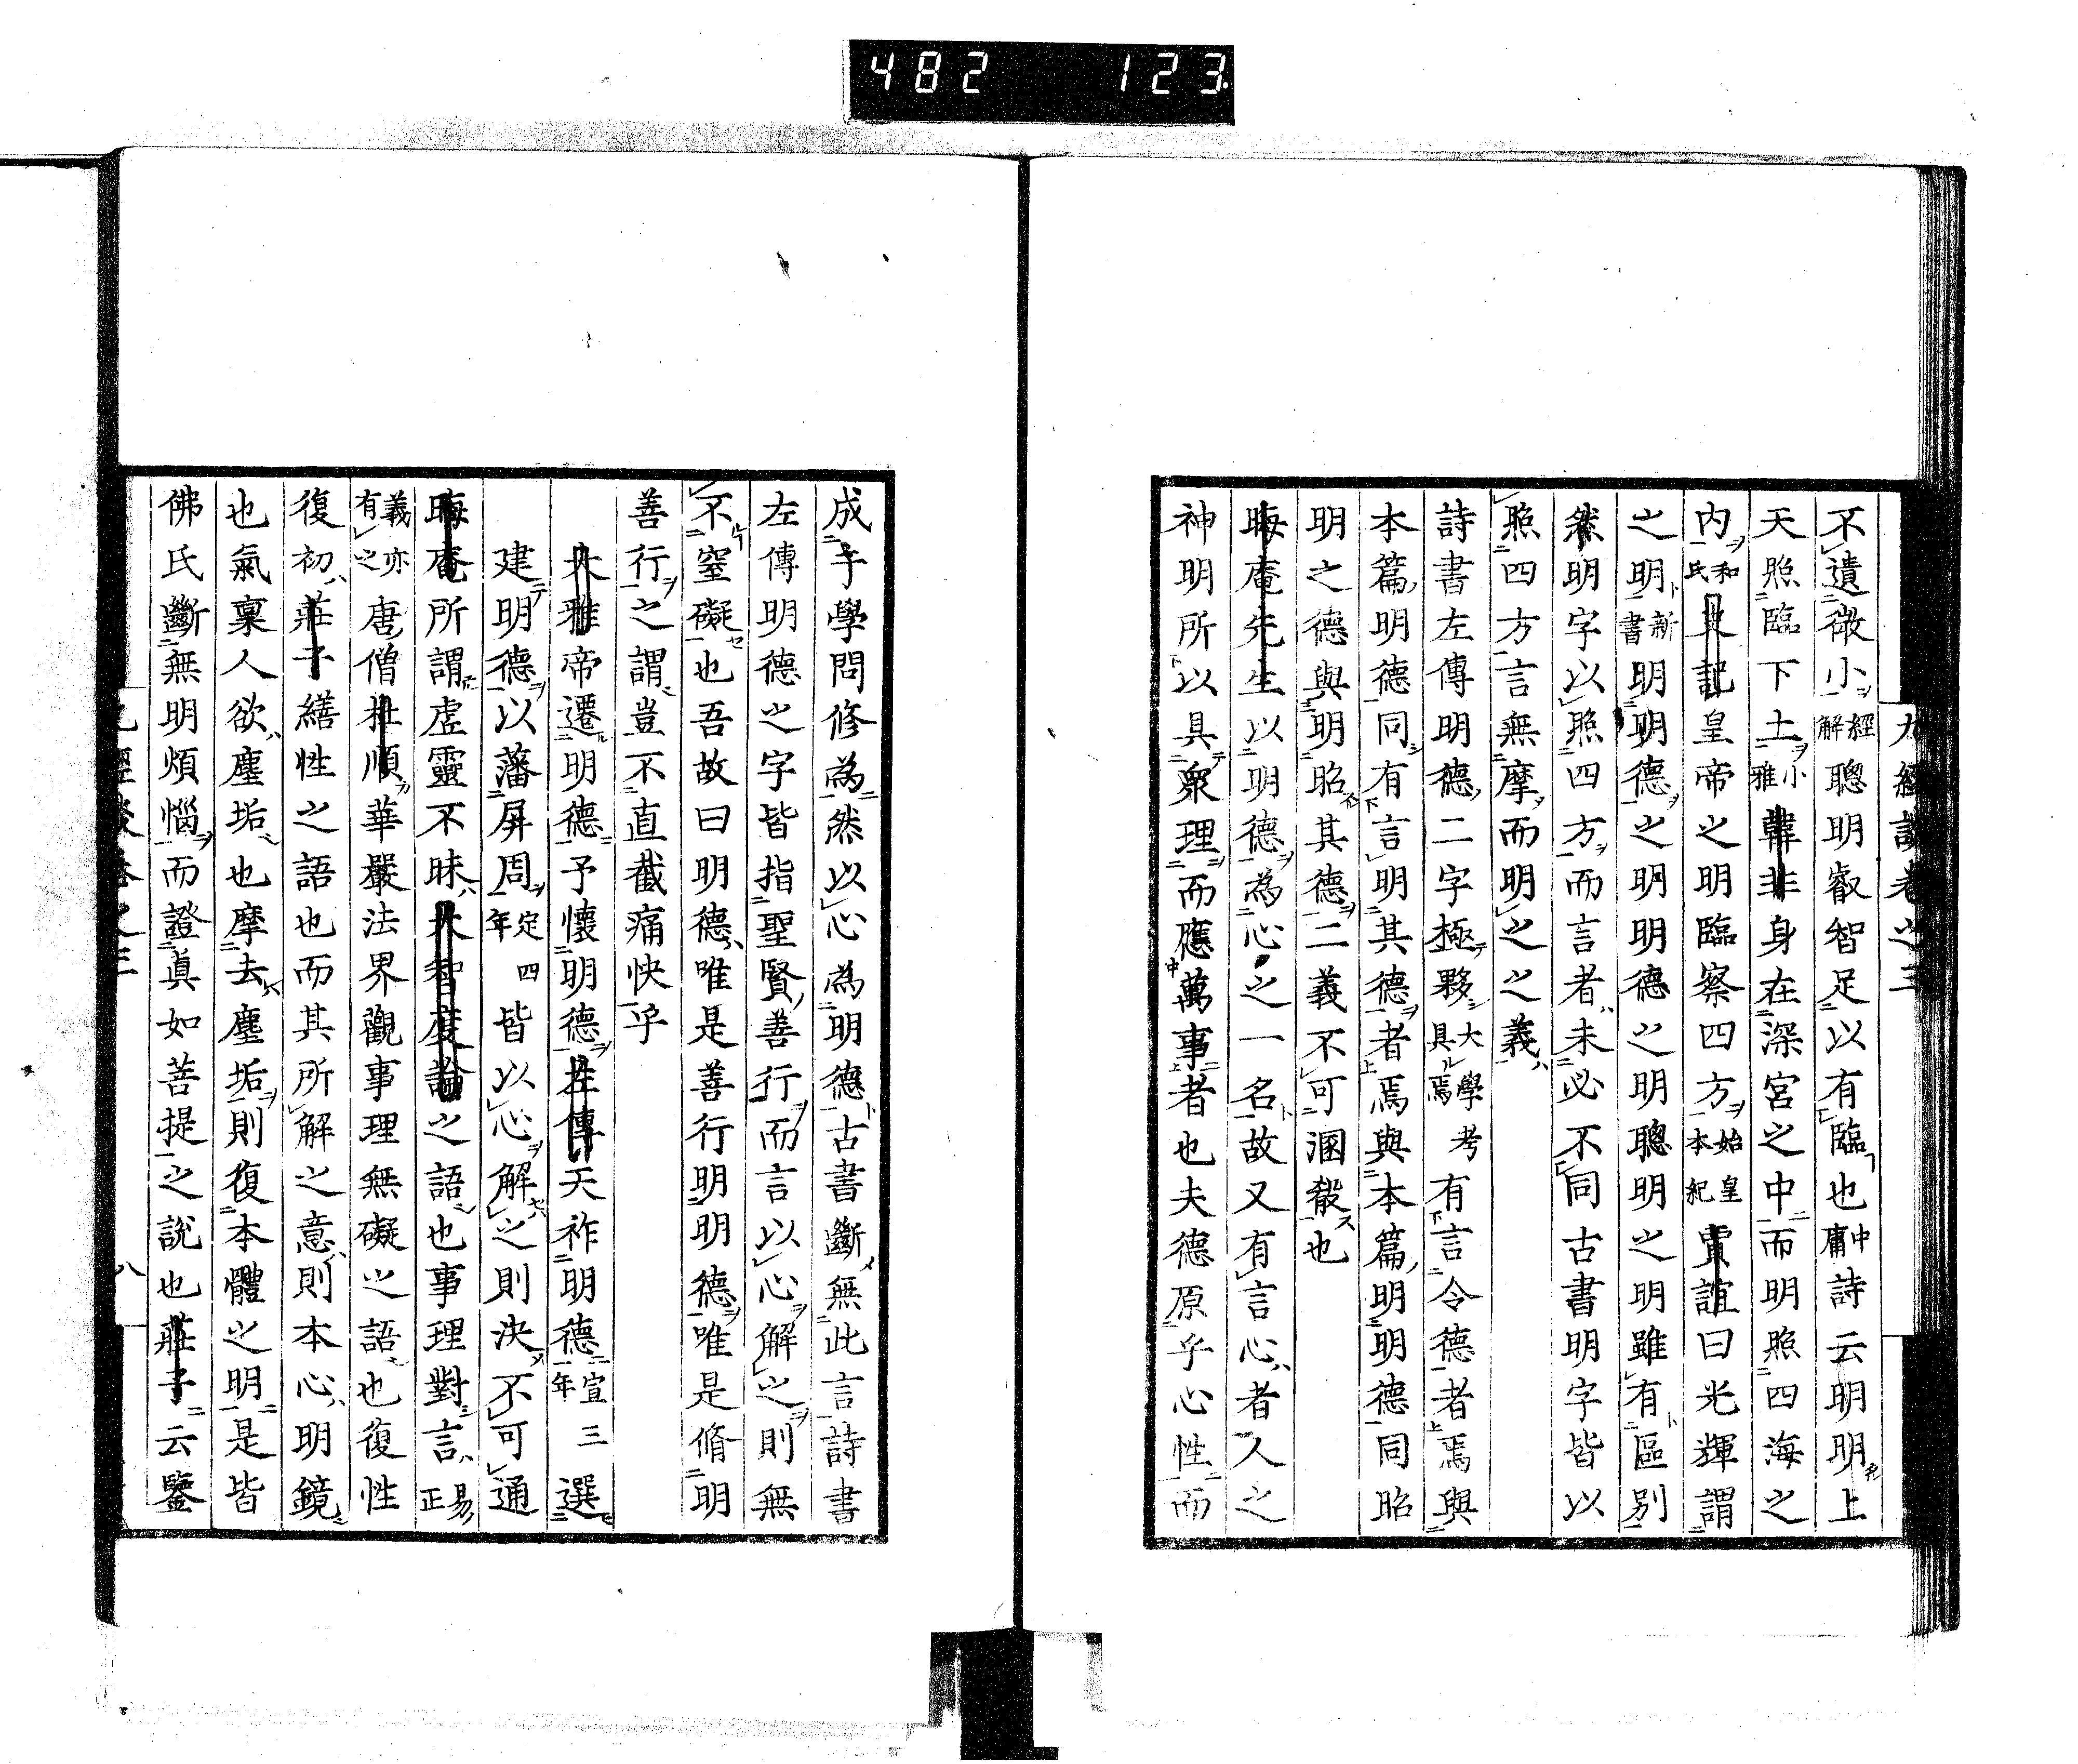 482 123
九經談卷之三
不遺微小經解聰明叡智足以有臨也中庸詩云明明上
天照臨下土小雅韓非身在深宮之中而明照四海之
内和氏史記皇帝之明臨察四方始皇本紀賈誼曰光輝謂
之明新書明明德之明明德之明聰明之明雖有區別
然明字以照四方而言者未必不同古書明字皆以
照四方言無摩而明之之義
詩書左傳明德二字極夥大學考具焉有言令德者焉與
本篇明德同有言明其德者焉與本篇明明德同昭
明之德與明昭其德二義不可溷殽也
晦庵先生以明德為心之一名故又有言心者人之
神明所以具衆理而應萬事者也夫德原乎心性而
成乎學問修為然以心為明德古書斷無此言詩書
左傳明德之字皆指聖賢善行而言以心解之則無
不窒礙也吾故曰明德唯是善行明明德唯是脩明
善行之謂豈不直截痛快乎
大雅帝遷明德予懷明德左傳天祚明德宣三年選
建明德以藩屏周定四年皆以心解之則決不可通
晦庵所謂虛靈不昧大智度論之語也事理對言易正
義亦有之唐僧杜順華嚴法界觀事理無礙之語也復性
復初莊子繕性之語也而其所解之意則本心明鏡
也氣稟人欲塵垢也摩去塵垢則復本體之明是皆
佛氏斷無明煩惱而證眞如菩提之說也莊子云鑒
九經談卷之三
八